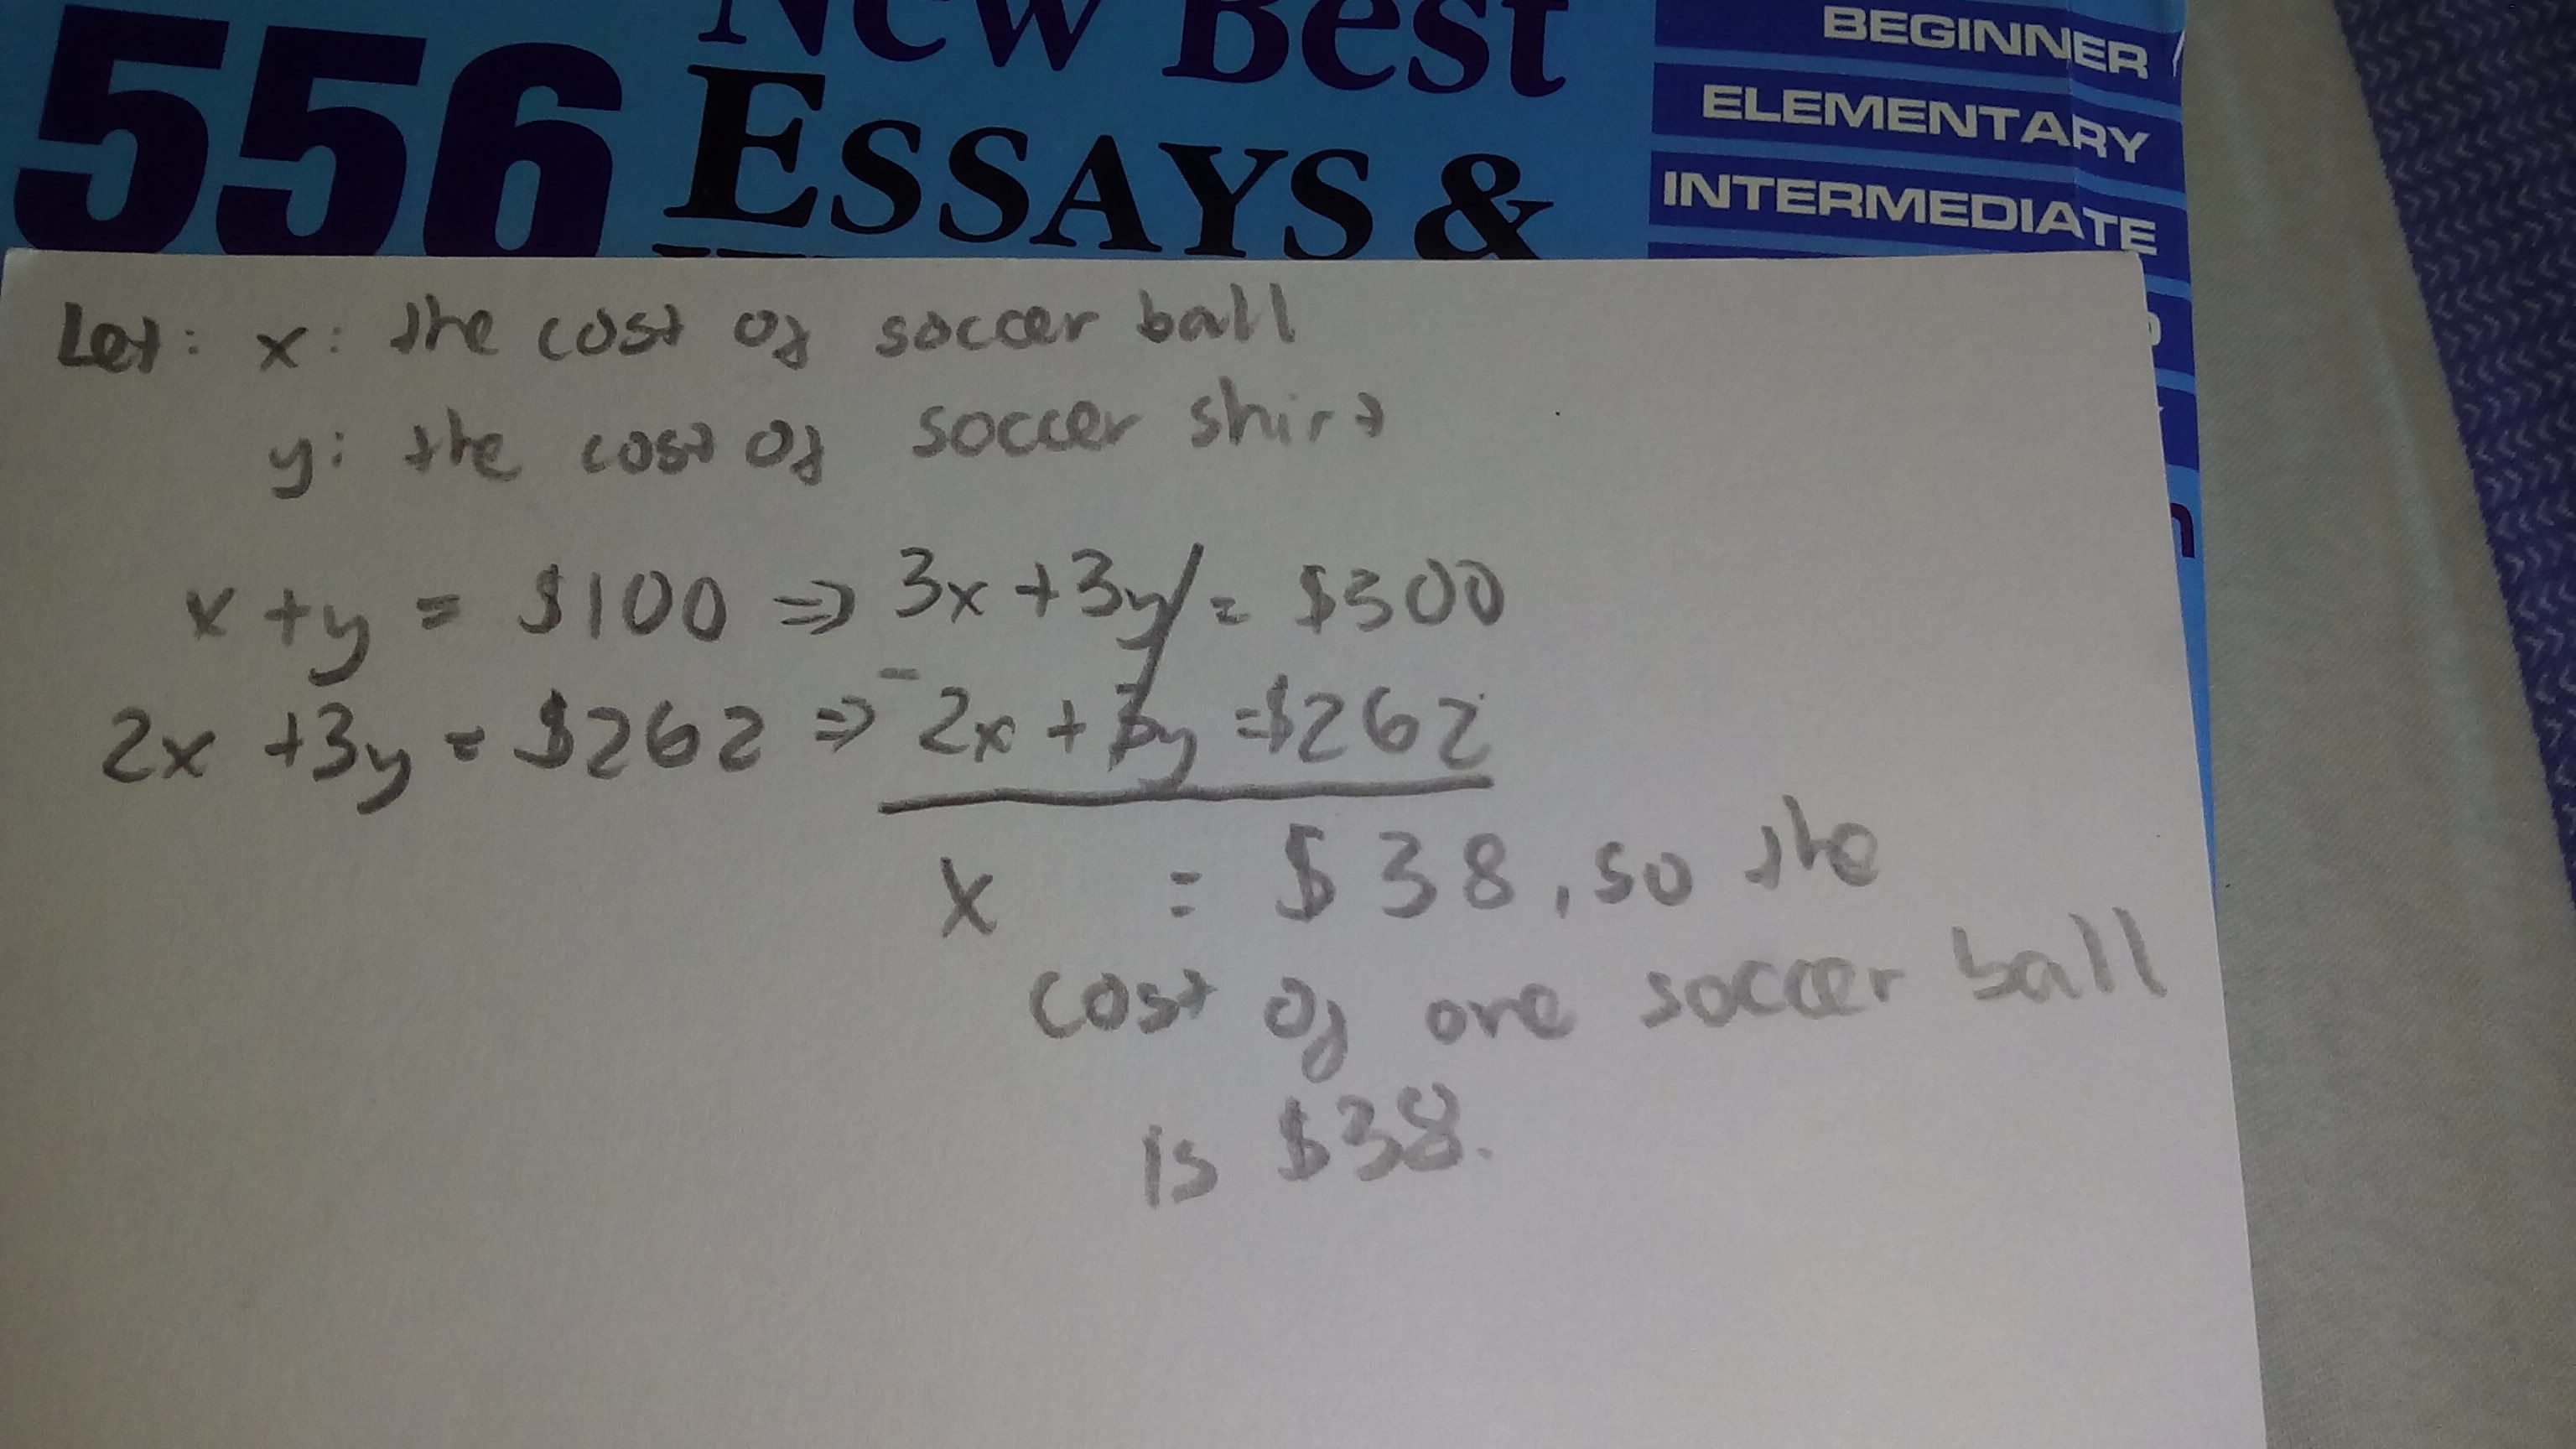 556 New Best
ESSAYS &
BEGINNER
ELEMENTARY
INTERMEDIATE
Let: x: the cost of soccer ball
y: the cost of soccer shirt
x + y = $100 => 3x + 3y = $300
2x + 3y = $262 => - 2x + 3y = $262
x = $38, so the
cost of one soccer ball
is $38.